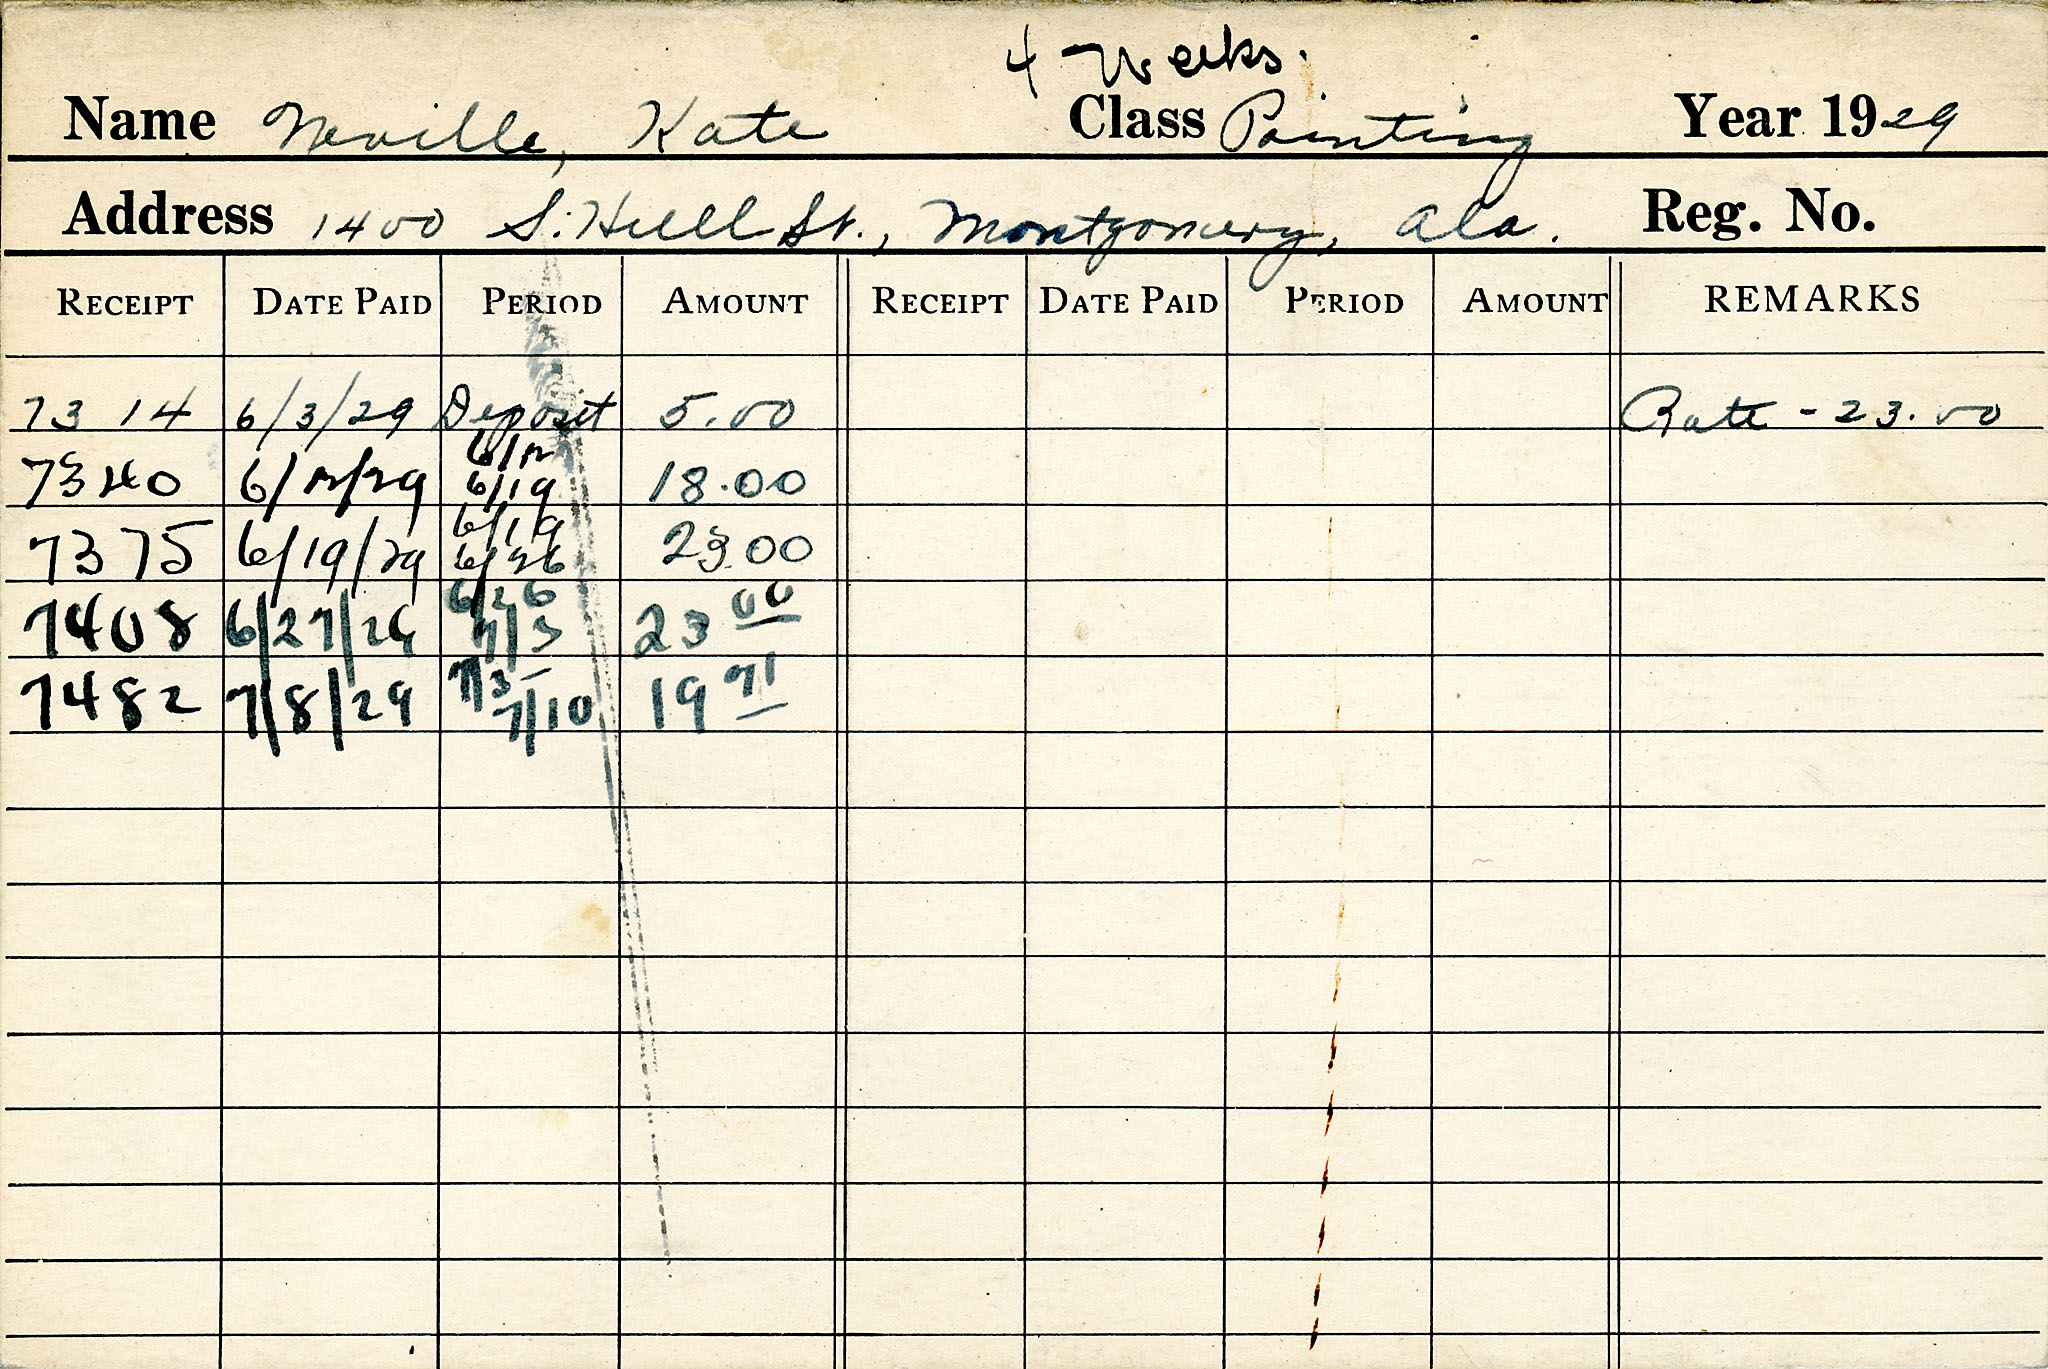 4 Weeks.
Name Neville, Kate Class Painting Year 1929
Address 1400 S. Hull St., Montgomery, Ala. Reg. No.
RECEIPT DATE PAID PERIOD AMOUNT RECEIPT DATE PAID PERIOD AMOUNT REMARKS
7314 6/3/29 Deposit 5.00 Rate - 23.00
6/12
7340 6/12/29 6/19 18.00
6/19
7375 6/19/29 6/26 23.00
6/26
7408 6/27/29 7/3 23 00
7/3-
7482 7/8/29 7/10 19 71